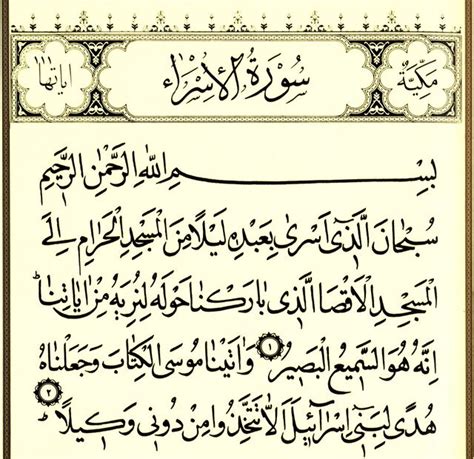 مكية سورة الإسراء اياتها
بسم الله الرحمن الرحيم
سبحان الذي اسرى بعبده ليلا من المسجد الحرام الى
المسجد الاقصا الذي باركنا حوله لنريه من اياتنا ط
انه هو السميع البصير ١ واتينا موسى الكتاب وجعلناه
هدى لبني اسرائل الا تتخذوا من دوني وكيلا ط ٢